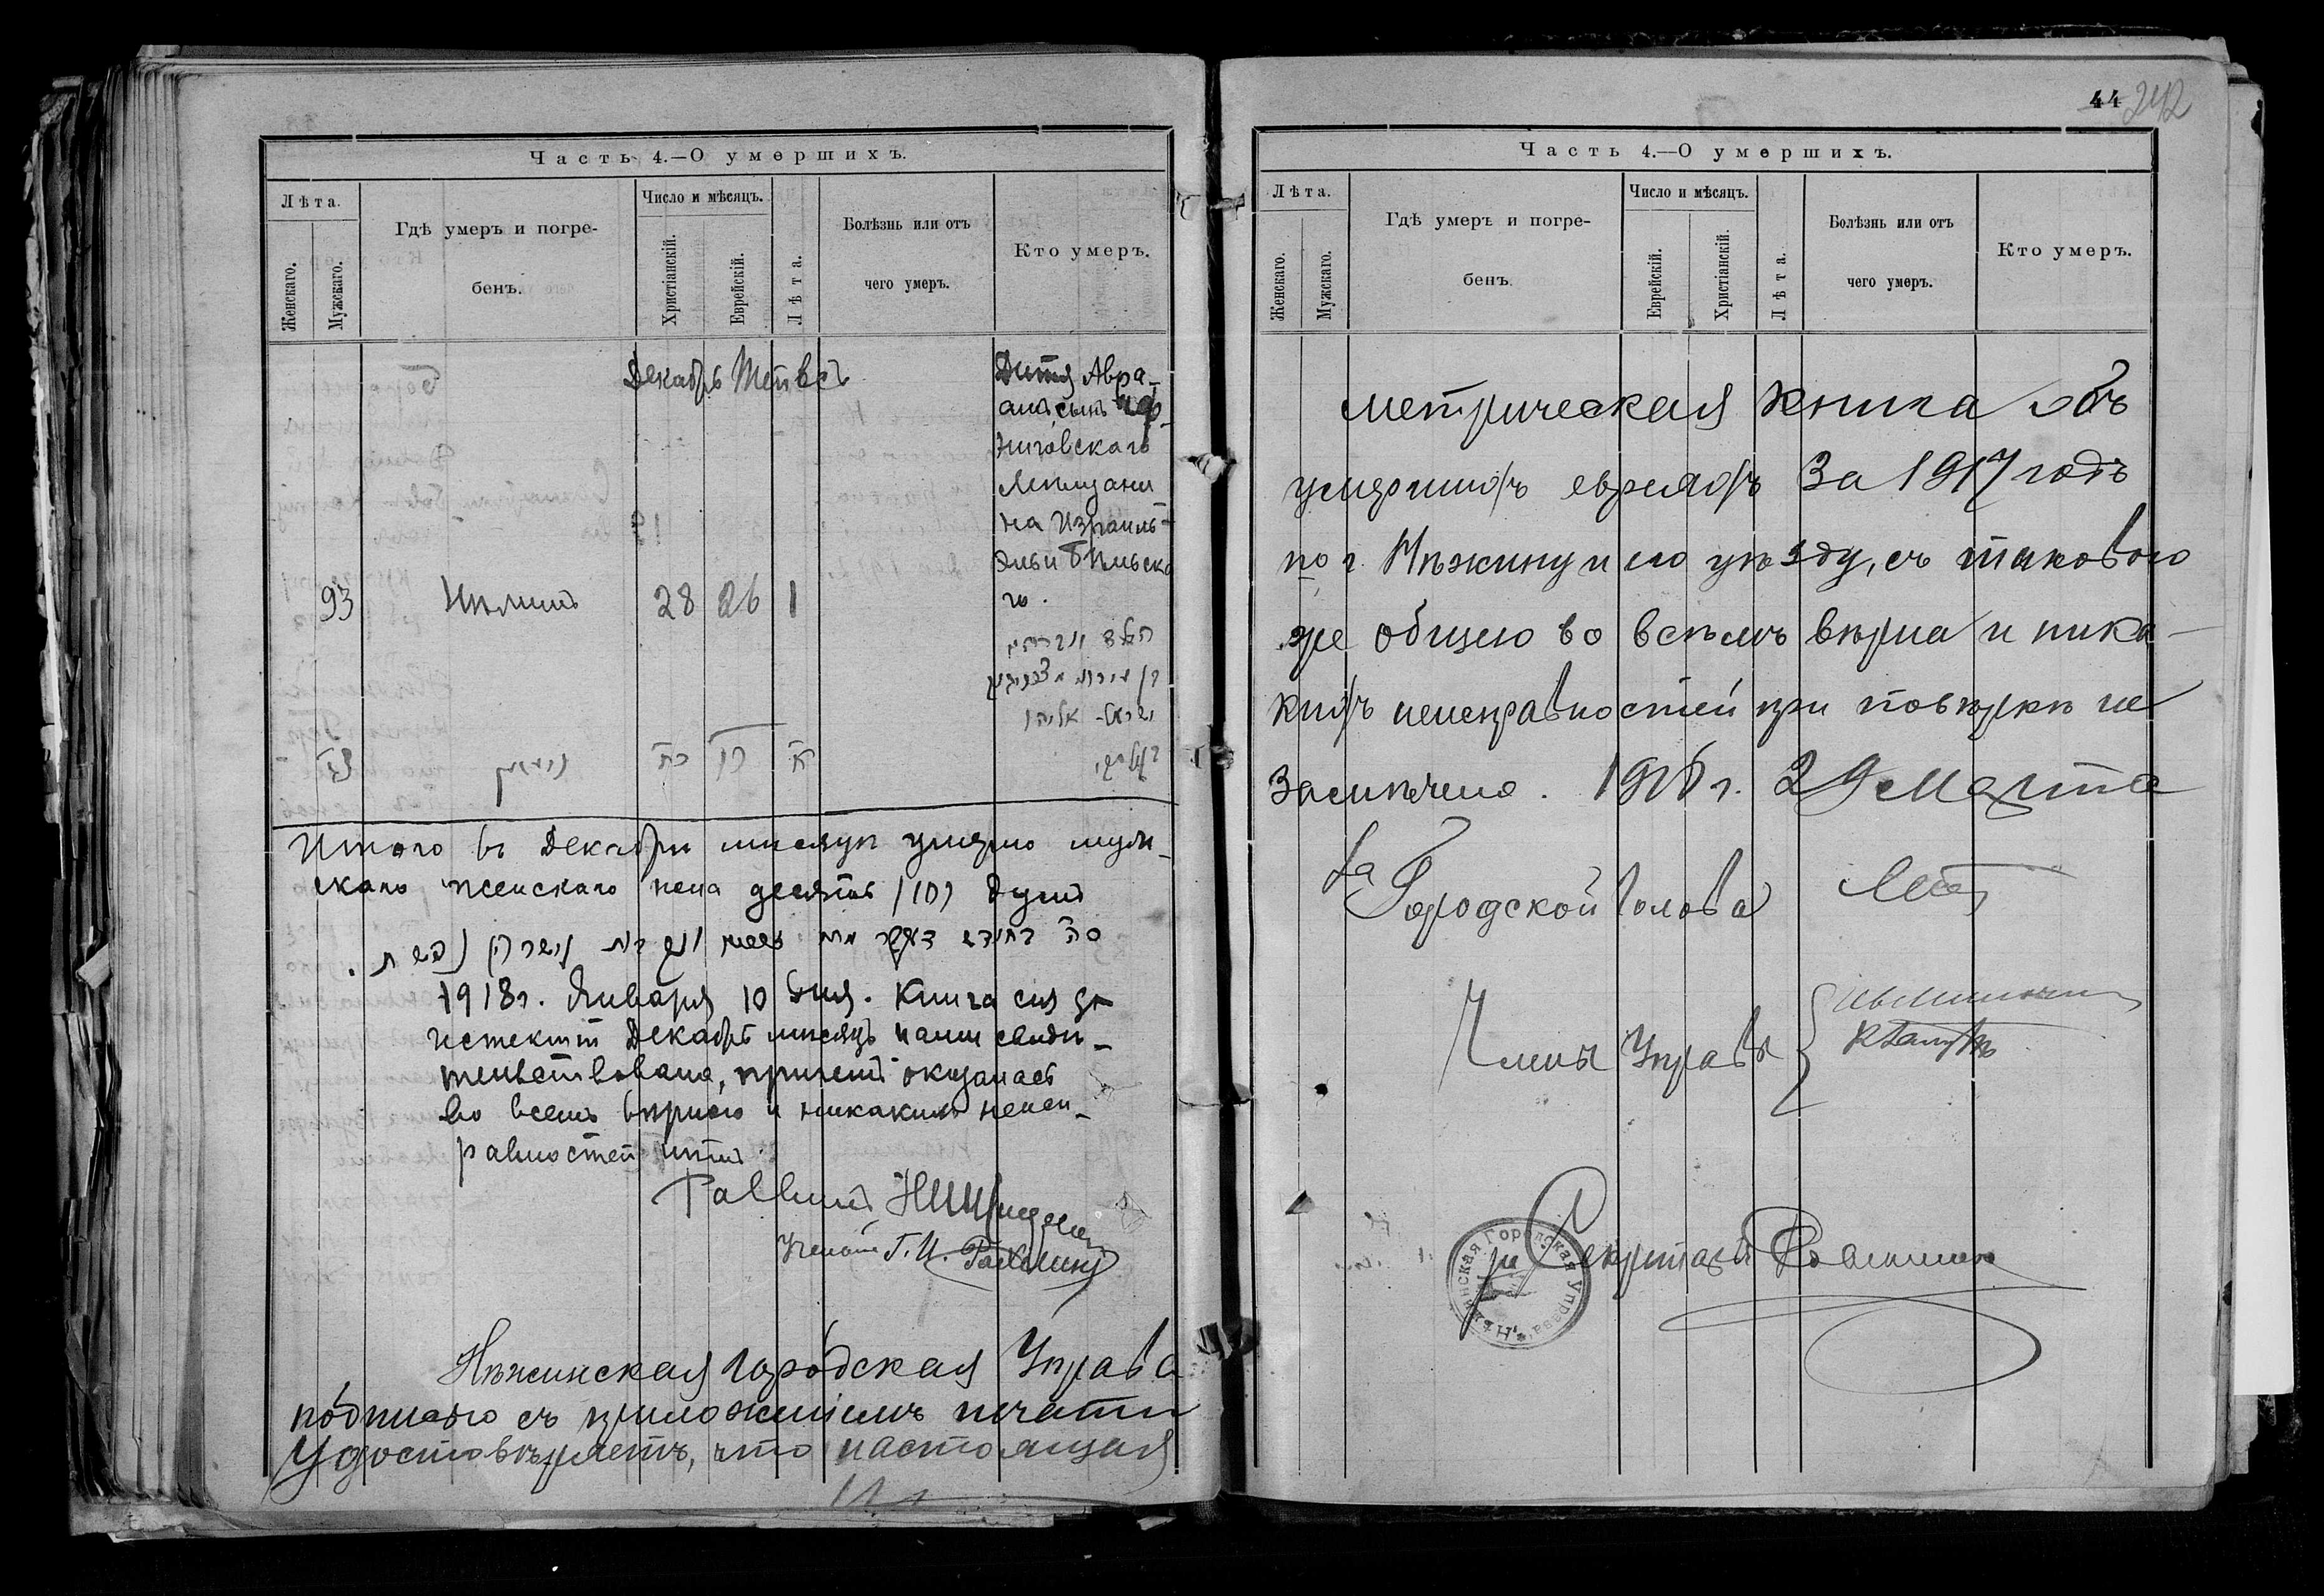 Часть 4.—О умершихъ.
Лѣта.
Женскаго.
Мужскаго.
Гдѣ умеръ и погре-
бенъ.
Число и мѣсяцъ.
Христіанскій.
Еврейскій.
Лѣта.
Болѣзнь или отъ
чего умеръ.
Кто умеръ.
Декабрь Тейвсъ
Дитя Авра-
амъ сынъ Чер-
ниговскаго
Мѣщани
на Израиль-
го.
93 Нѣжинъ 28 26 1
ישראל- אליהו
צג ניעזין כח כו א
Итого въ Декабрѣ мѣсяцѣ умерло муж-
скаго женскаго пола десять (10) душъ
1918г. Января 10 дня. Книга сія за
истекшій Декабрь мѣсяцъ нами свидѣ-
тельствована, причемъ оказалась
во всемъ вѣрною и никакихъ неисп-
равностей нѣтъ.
Раввинъ
Ученый Г. И.
Нѣжинская Городская Управа
подписью съ приложеніемъ печати
Удостовѣряетъ, что настоящая
44 242
Часть 4.—О умершихъ.
Лѣта.
Женскаго.
Мужскаго.
Гдѣ умеръ и погре-
бенъ.
Число и мѣсяцъ.
Еврейскій.
Христіанскій.
Лѣта.
Болѣзнь или отъ
чего умеръ.
Кто умеръ.
метрическая книга объ
умершихъ евреяхъ за 1917 годъ
по г. Нѣжину и его уѣзду, съ таковою
же общею во всемъ вѣрна и ника-
кихъ неисправностей при повѣркѣ не
замѣчено. 1918 г. 29 Марта
За Городской Голова
Члены Управы
Секретарь
Нѣжинская Городская Управа